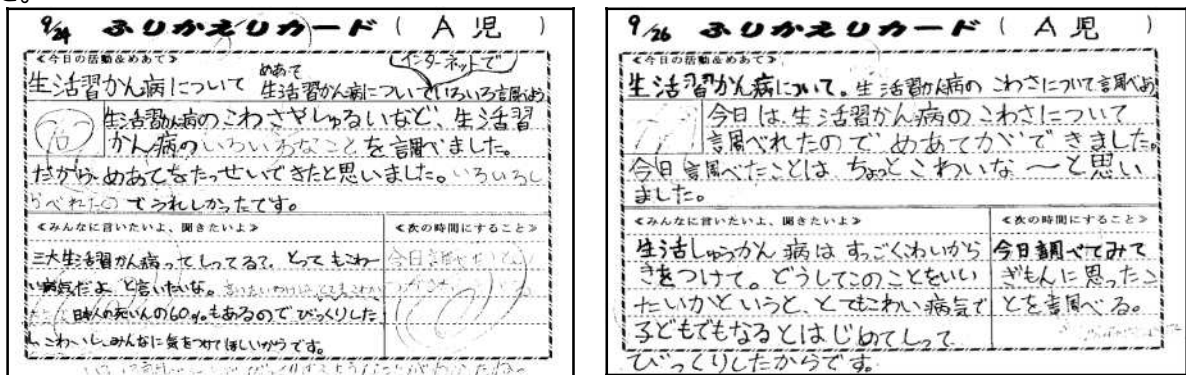 9/24 ふりかえりカード ( A 児 )
≪今日の活動&めあて≫
(インターネットで)
生活習かん病について めあて 生活習かん病についていろいろ調べよう
生活習かん病のこわさやしゅるいなど、生活習
かん病のいろいろなことを調べました。
だからめあてをたっせいできたと思いました。いろいろし
らべれたのでうれしかったです。
≪みんなに言いたいよ、聞きたいよ≫
三大生活習かん病ってしってる?、とってもこわー
い病気だよ と言いたいな。
日本人の死いんの60%もあるのでびっくりした
し、こわーいし、みんなに気をつけてほしいからです。
≪次の時間にすること≫
今日
9/26 ふりかえりカード ( A 児 )
≪今日の活動&めあて≫
生活習かん病について。生活習かん病の こわさについて調べよう
今日は、生活習かん病のこわさについて
調べれたので めあてがで きました。
今日 調べたことは、ちょっとこわいな 〜と思い
ました。
≪みんなに言いたいよ、聞きたいよ≫
生活しゅうかん 病は すっごくわいから
きをつけて。どうしてこのことをいい
たいかというと、とてもこわい病気で
子どもでもなるとはじめてしって
びっくりしたからです。
≪次の時間にすること≫
今日調べてみて
ぎもんに思ったこ
とを調べる。